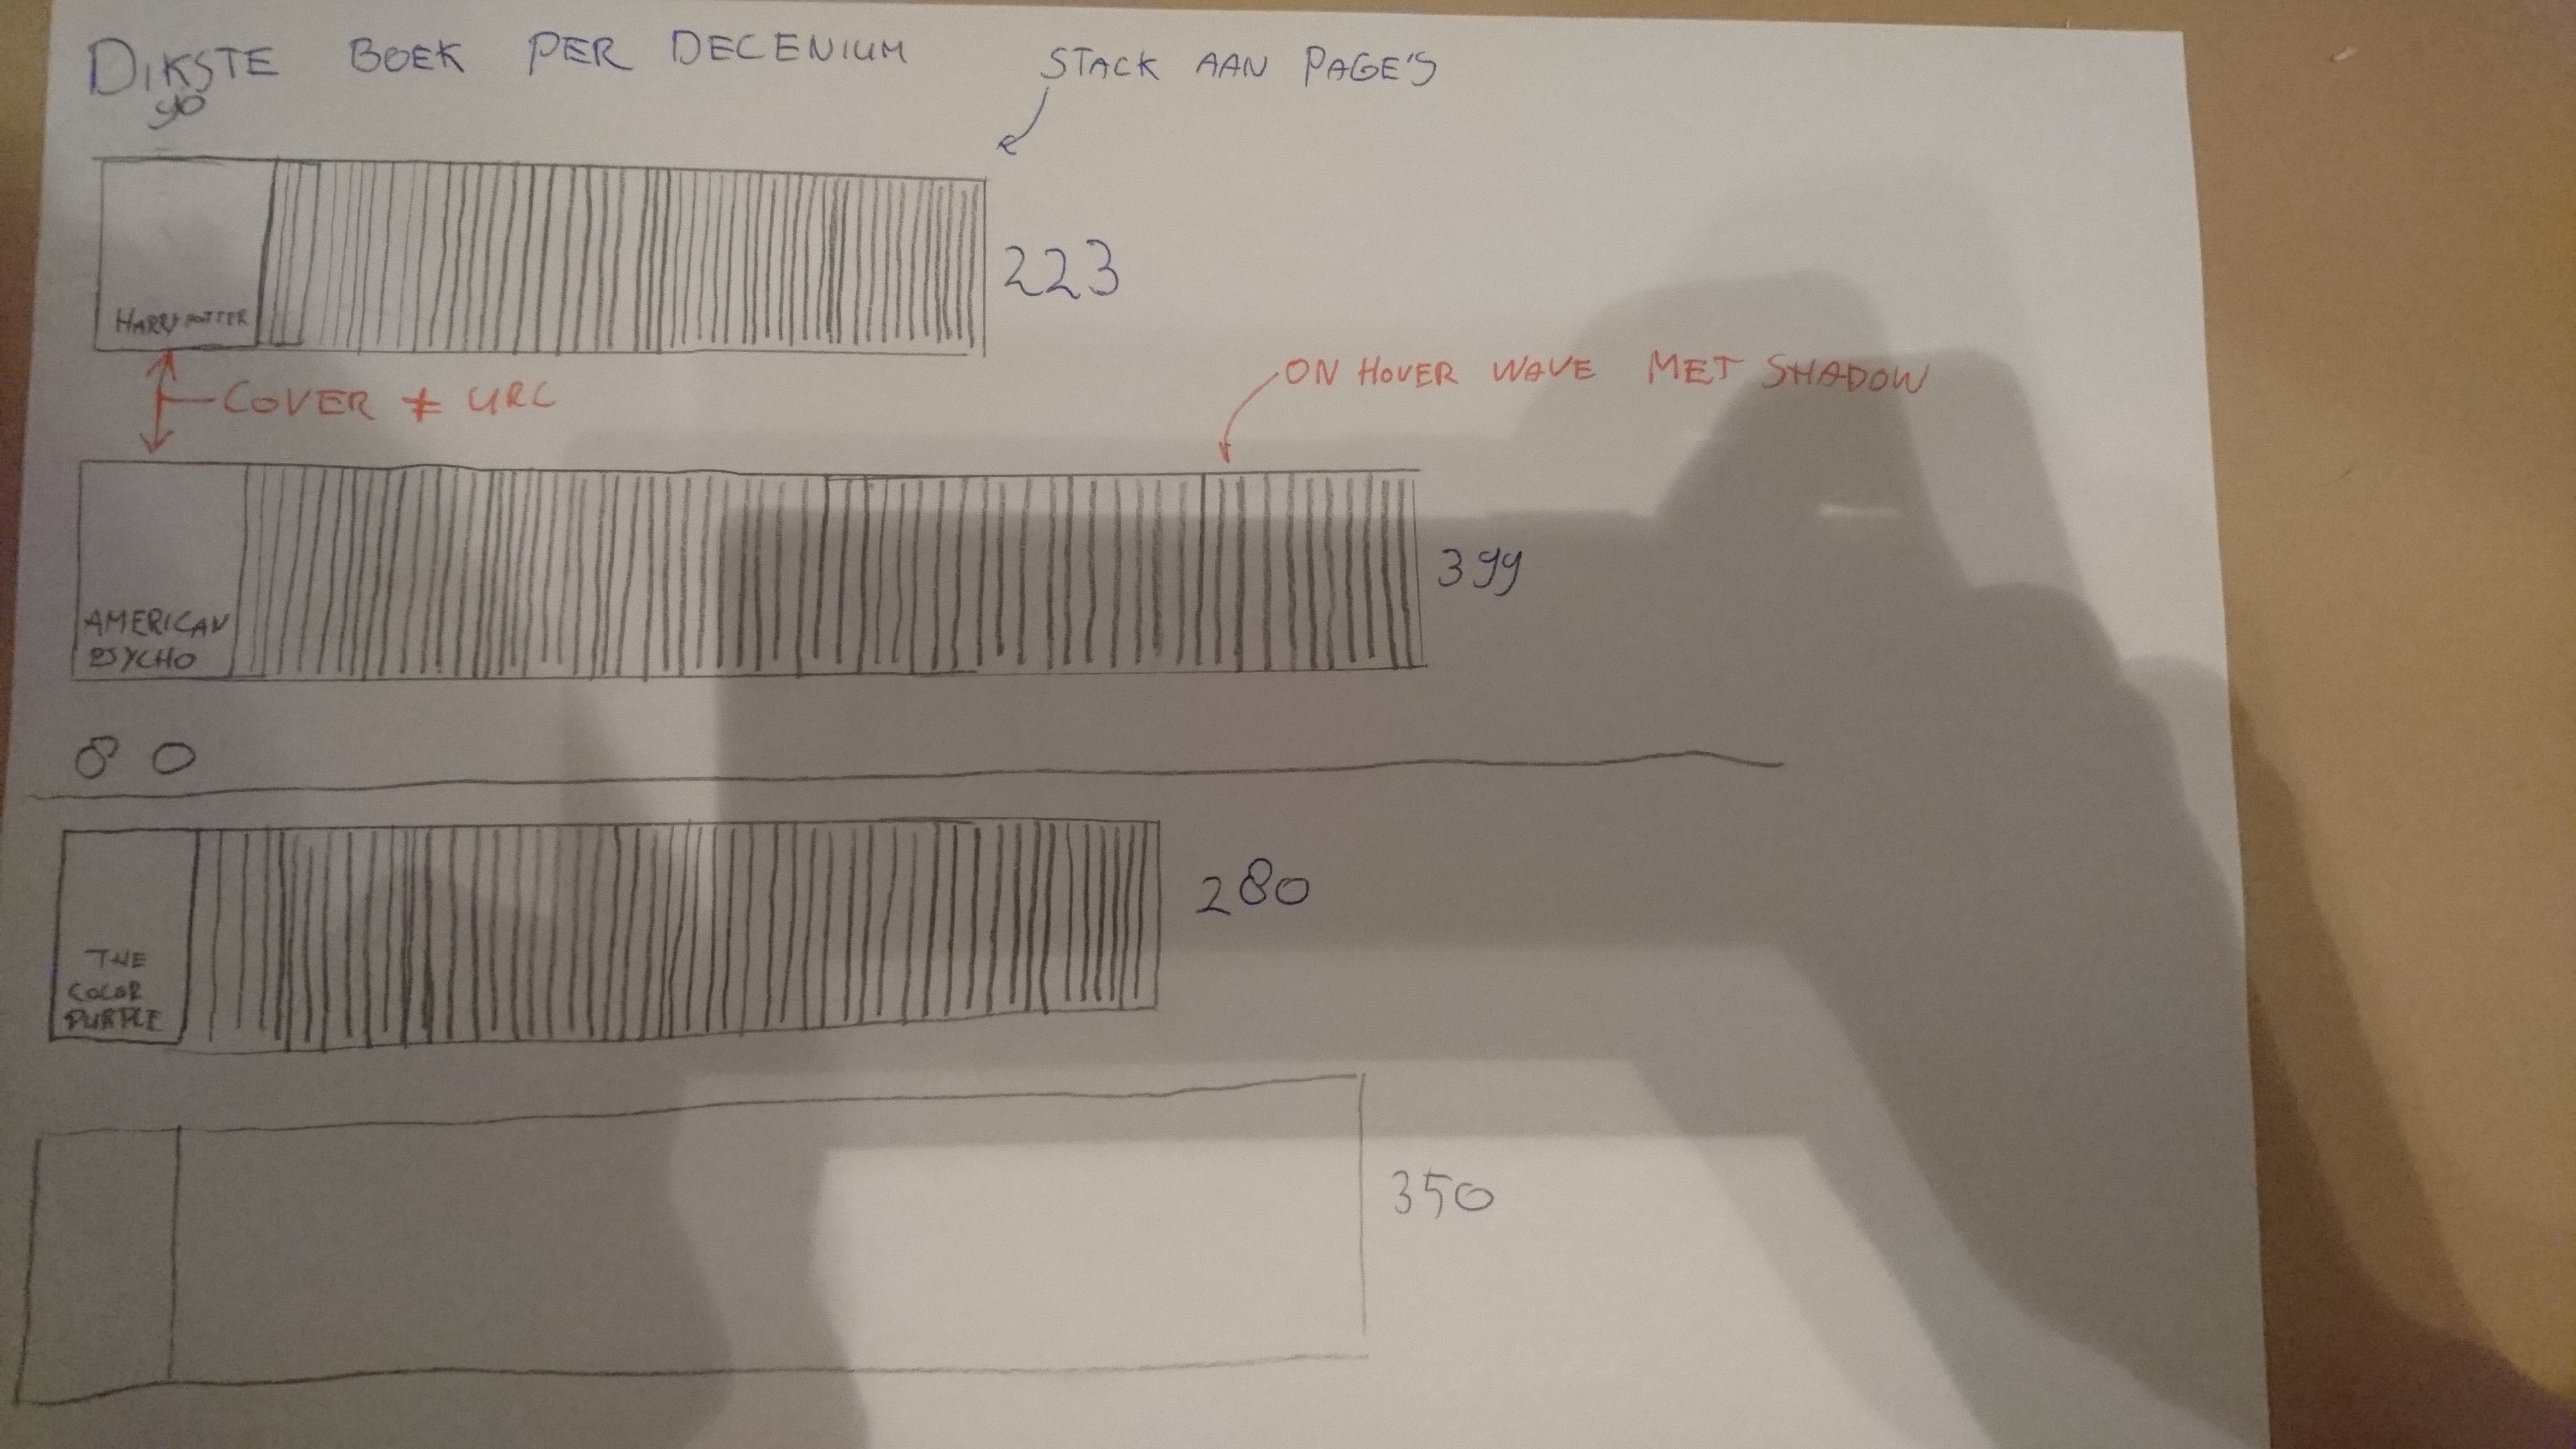 DIKSTE BOEK PER DECENIUM
STACK AAN PAGE'S
90
HARRY POTTER
223
COVER ≠ URL
ON HOVER WAVE MET SHADOW
AMERICAN
PSYCHO
399
80
THE
COLOR
PURPLE
280
350